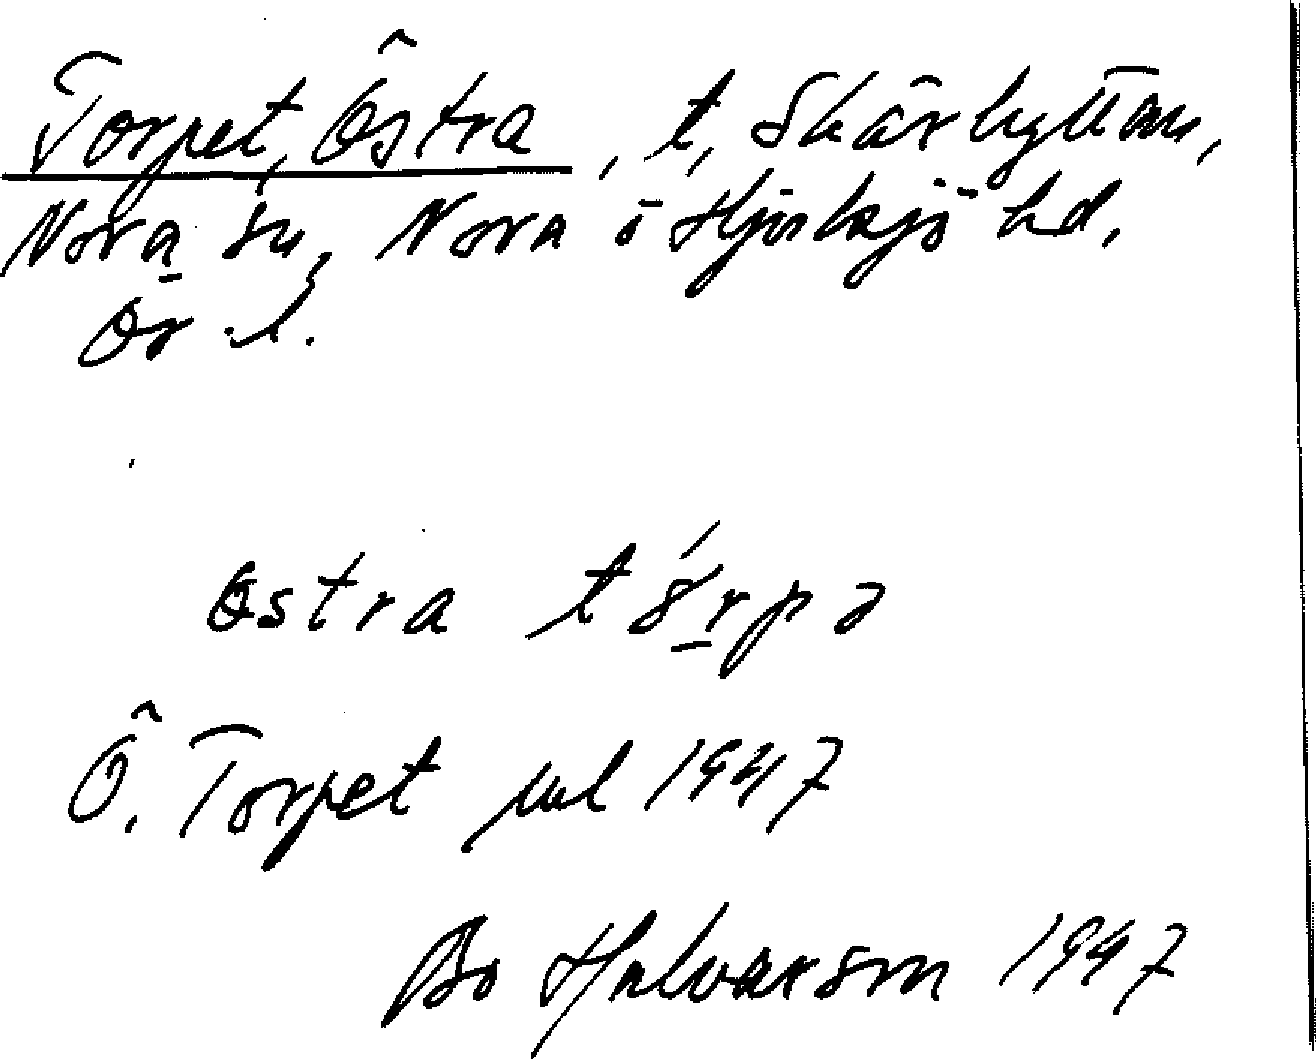 Torpet, Östra, t, Skärhyttan,
Nora sn, Nora o Hjulsjö hd,
Ör l.
östra tórpə
Ö. Torpet jbl 1947
Bo Halvarson 1947